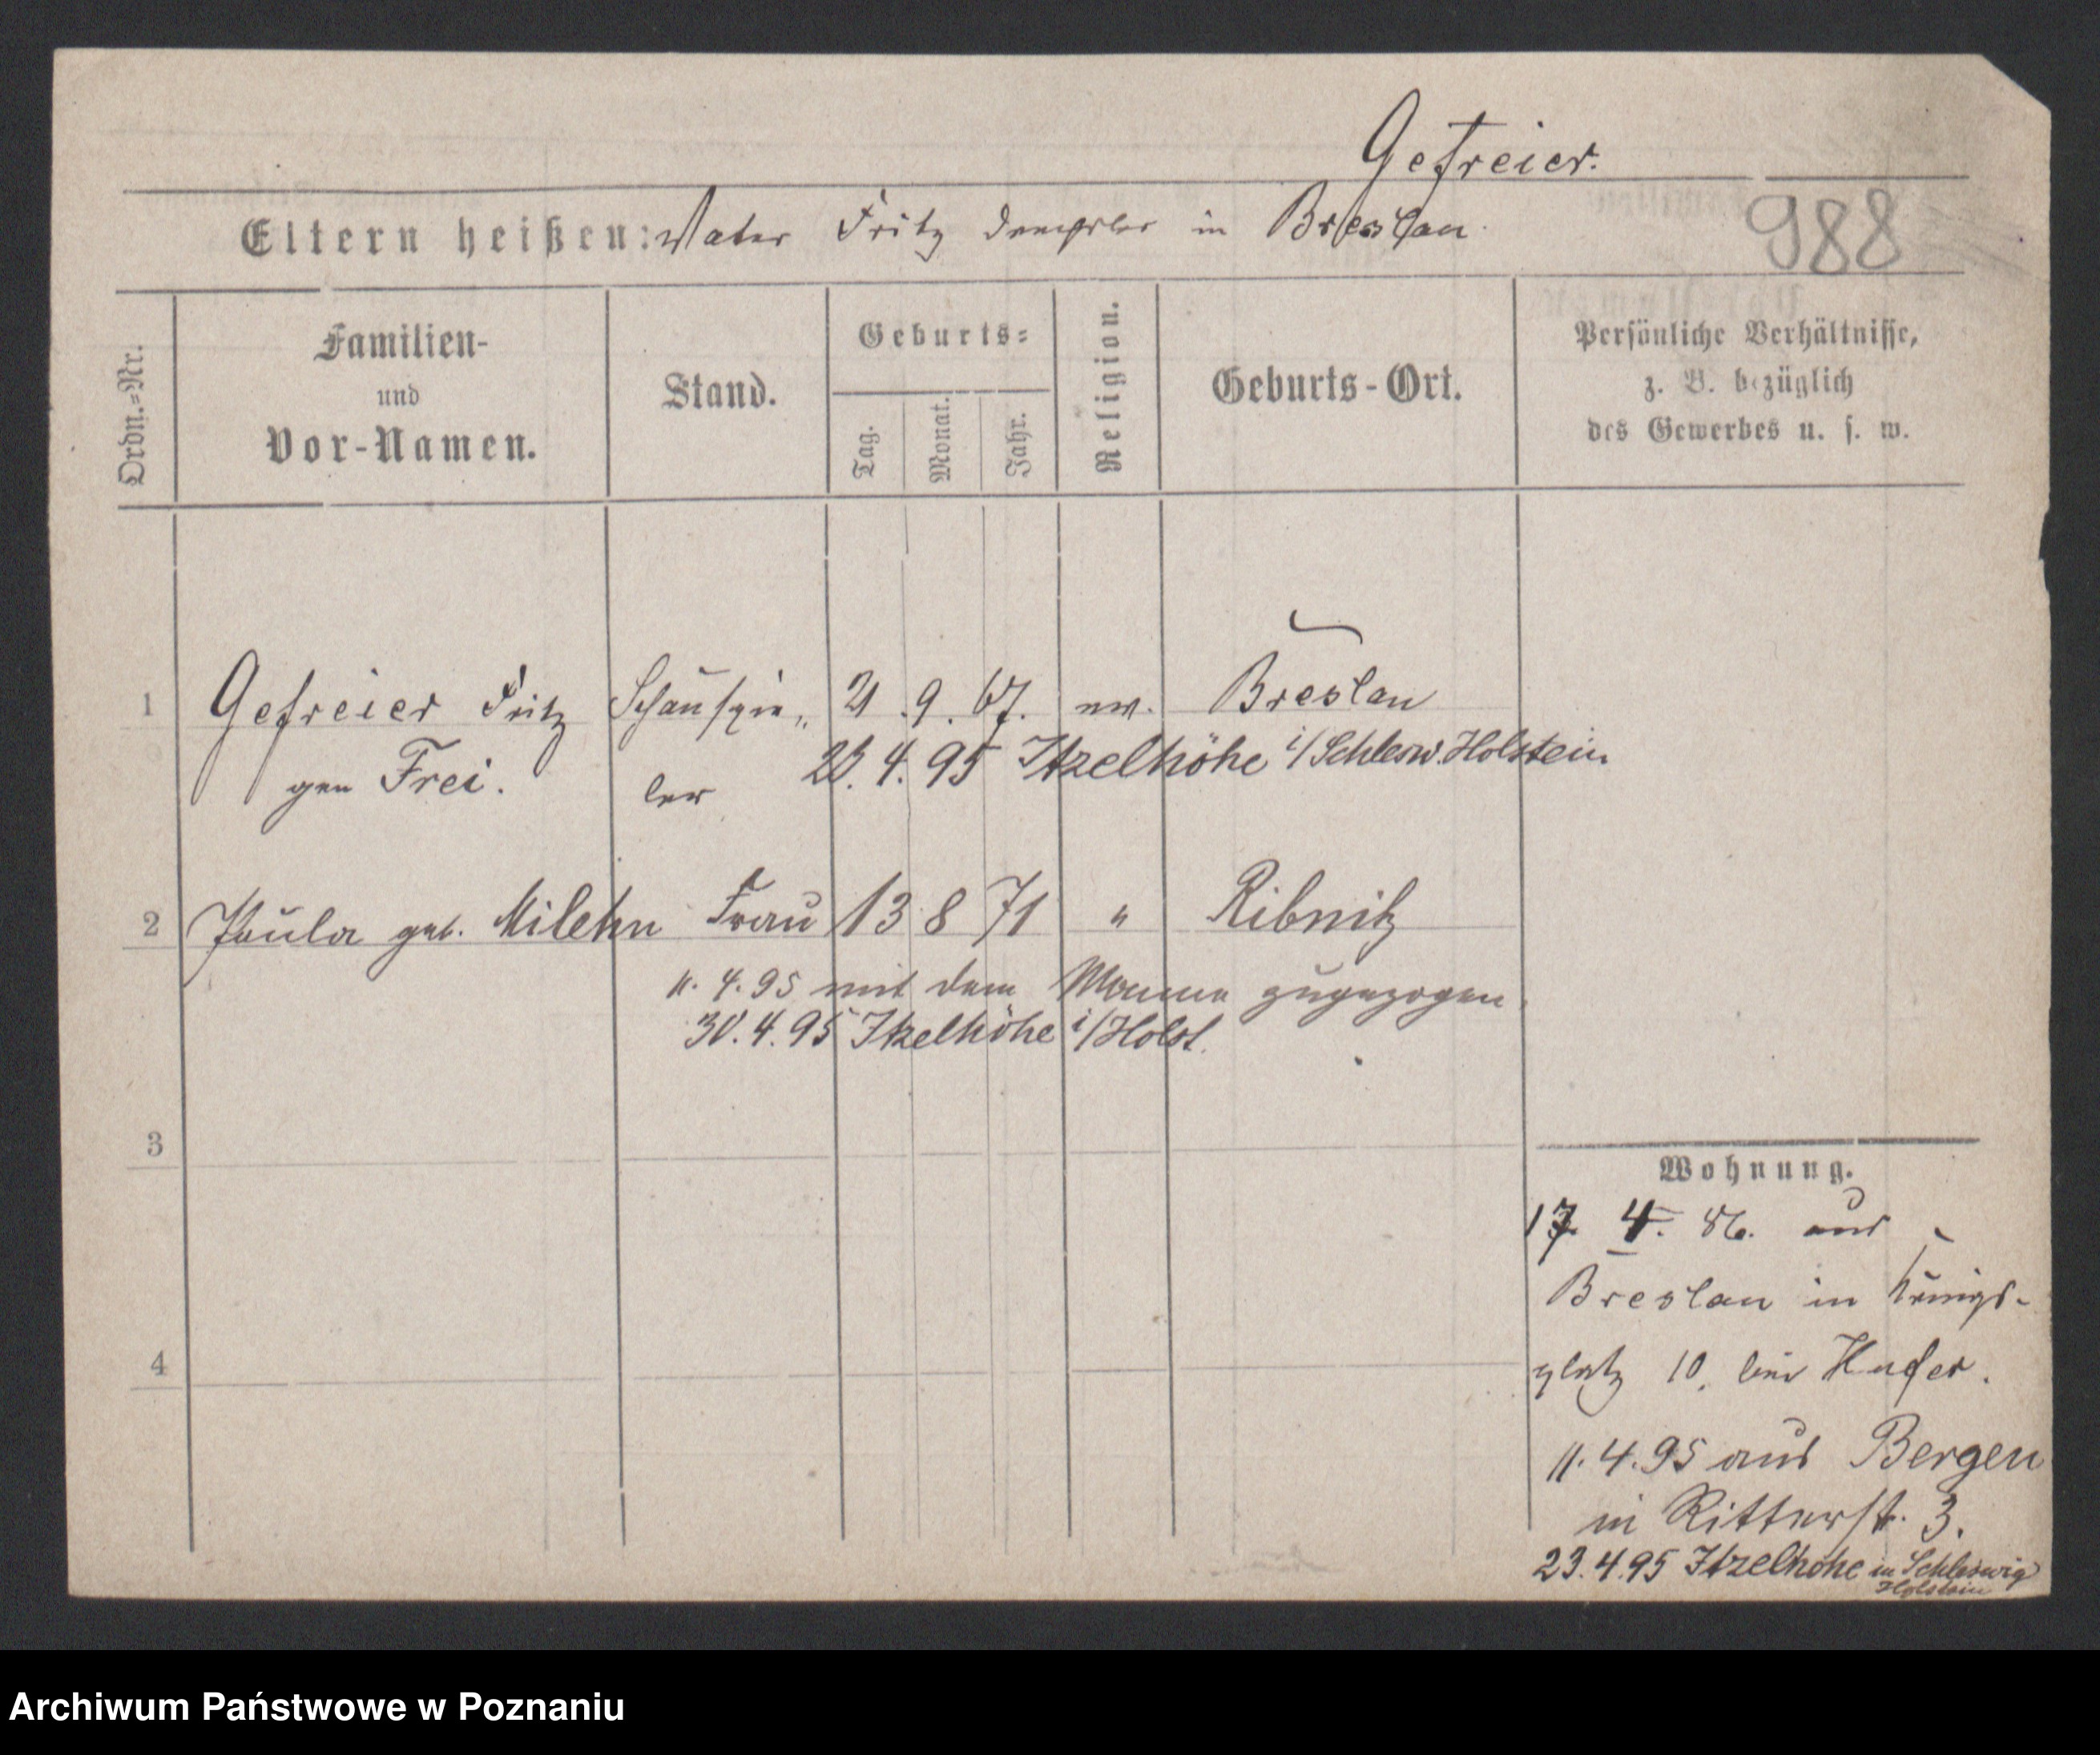 Gefreier.
Eltern heißen: Vater Fritz in Breslau.
988
Ordn.-Nr.
Familien-
und
Vor-Namen.
Stand.
Geburts-
Tag. Monat. Jahr.
Religion.
Geburts-Ort.
Persönliche Verhältnisse,
z. B. bezüglich
des Gewerbes u. s. w.
1 Gefreier Fritz Schauspie- 21. 9. 67. ev. Breslau
gen Frei. ler 23. 4. 95 Itzelhöhe i/Schlesw. Holstein
2 Paula geb. Milehn Frau 13 8 71 " Ribnitz
11. 4. 95 mit dem Manne zugezogen.
30. 4. 95 Itzelhöhe i/Holst.
3
4
Wohnung.
17. 4. 86. aus
Breslau in Königs-
platz 10. bei Hufer.
11. 4. 95 aus Bergen
in Ritterstr. 3.
23. 4. 95 Itzelhöhe in Schleswig
Holstein
Archiwum Państwowe w Poznaniu